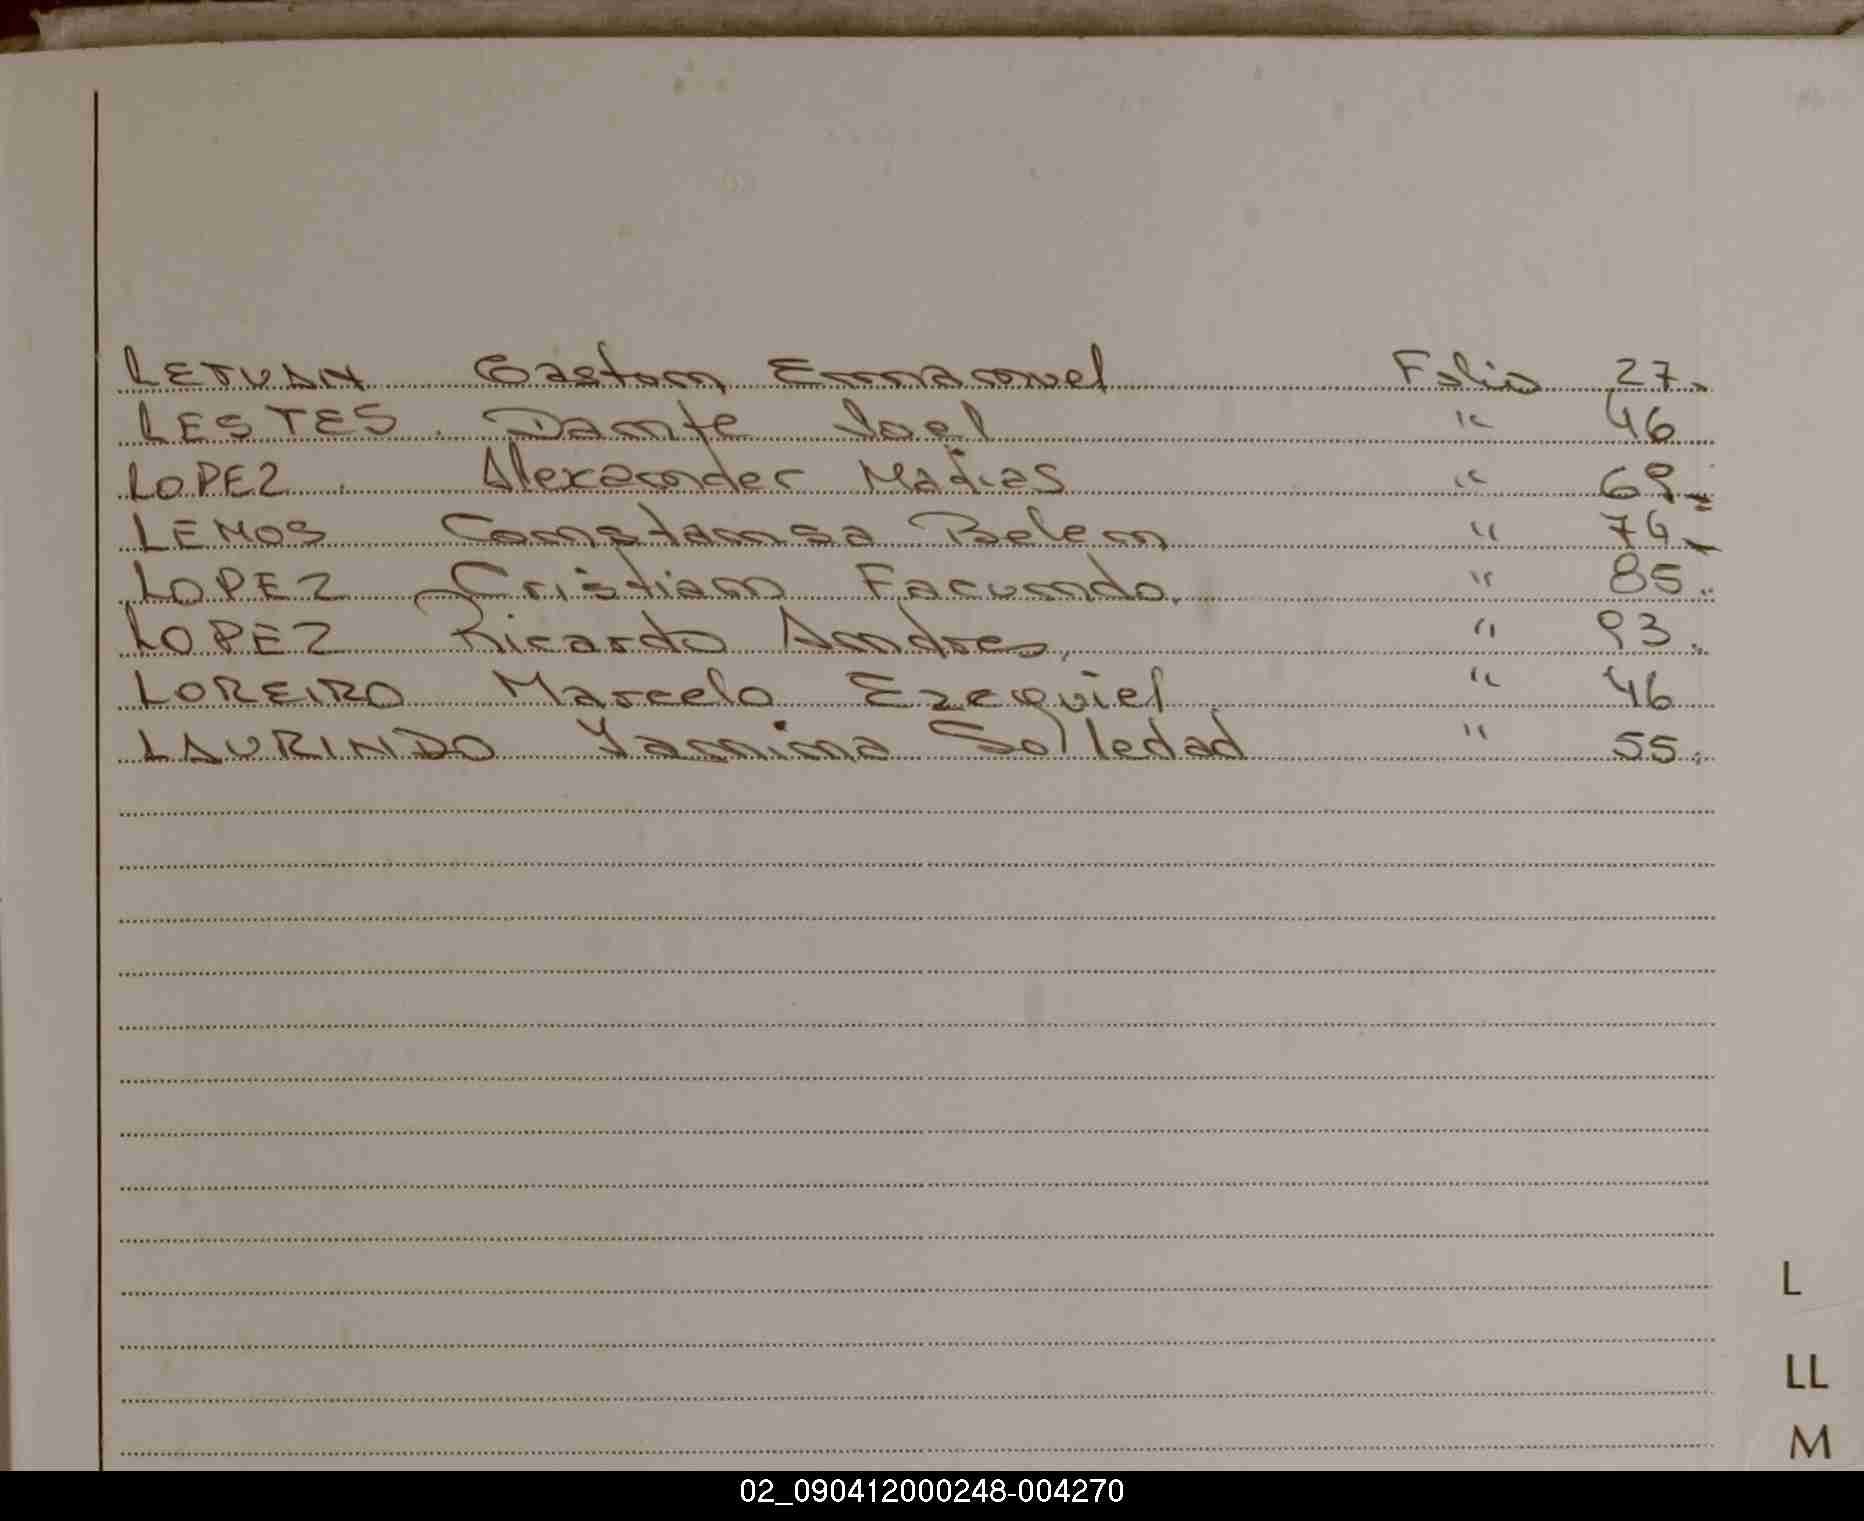 LETUAN Gaston Emmanuel Folio 27.
LESTES. Dante Joel " 46
LOPEZ. Alexander Matias " 69.=
LEMOS Constansa Belen " 74.-
LOPEZ Cristian Facundo. " 85.
LOPEZ Ricardo Andres. " 93.
LOREIRO Marcelo Ezequiel " 46
LAURINDO Yannina Solledad " 55.
L
LL
M
02_090412000248-004270